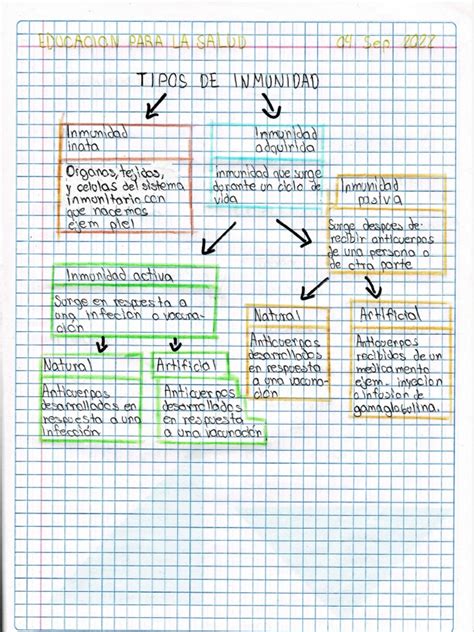 EDUCACION PARA LA SALUD
04 Sep 2022
TIPOS DE INMUNIDAD
Inmunidad
inata
Organos, tejidos,
y celulas del sistema
inmunitario con
que nacemos
ejem piel
Inmunidad
adquirida
inmunidad que surge
durante un ciclo de
vida
Inmunidad
pasiva
Surge despoes de
recibir anticuerpos
de una persona o
de otra parte
Inmunidad activa
Surge en respuesta a
una infecion o vacuna-
ción
Natural
Anticuerpos
desarrollados en
respuesta a una
infección
Artificial
Anticuerpos
desarrollados
en respuesta
a una vacunación
Natural
Anticuerpos
desarrollados
en respuesta
a una vacuna-
ción
Artificial
Anticuerpos
recibidos de un
medicamento
ejem. inyecion
o infusion de
gamaglobulina.